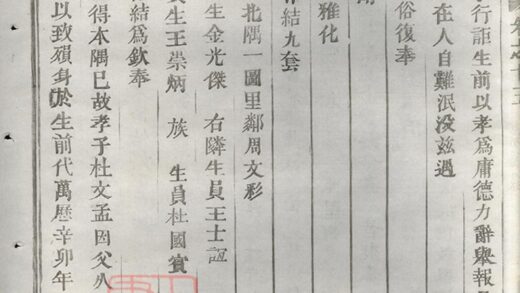 行詎生前以孝爲庸德力辭舉報
在人自難泯没兹過
俗復奉
雅化
結九套
北隅一圖里鄰周文彤
生金光傑 右隣生員王士誼
生王崇炳 族 生員杜國賓
結爲欽奉
得本隅已故孝子杜文孟因父八
以致殞身於生前代萬曆辛卯年